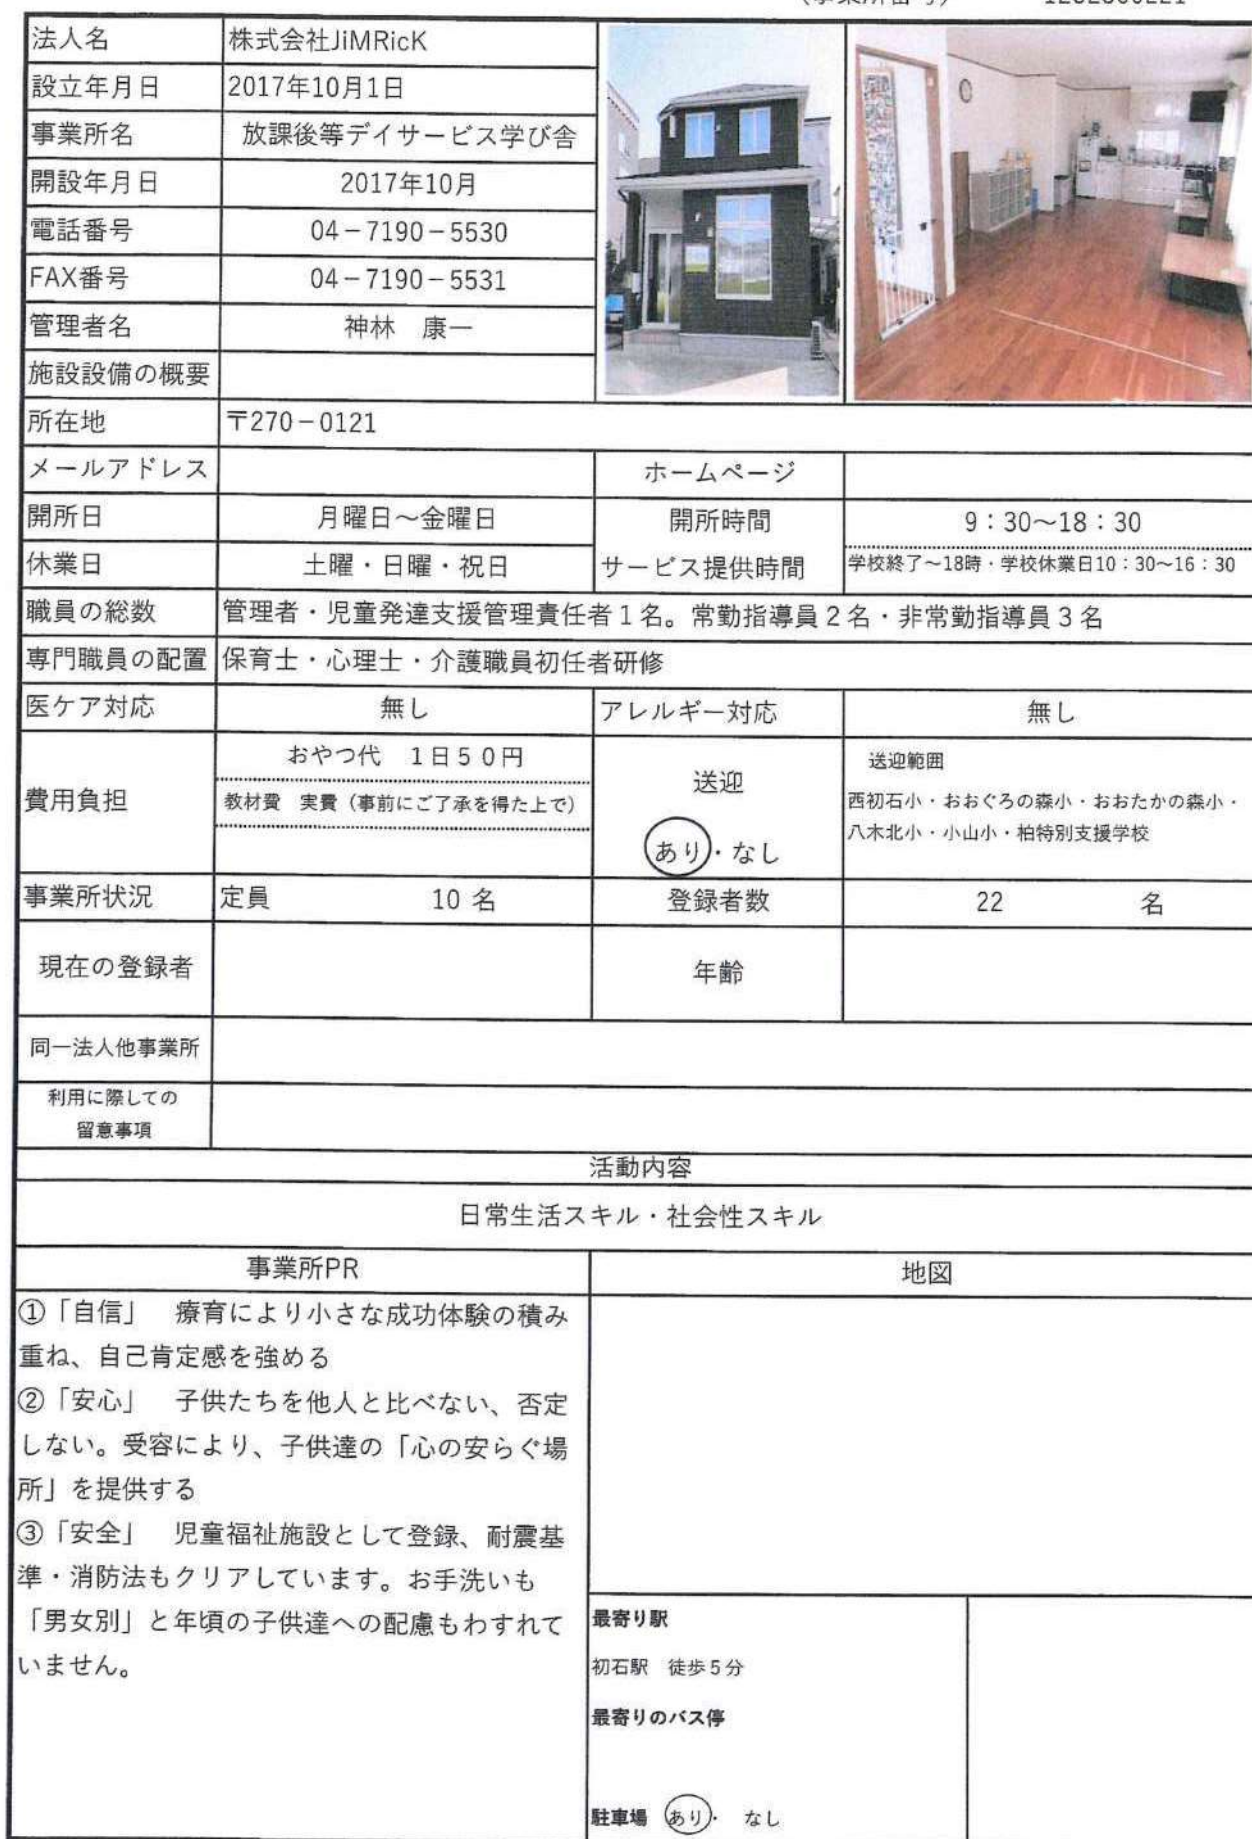 法人名 株式会社JiMRicK
設立年月日 2017年10月1日
事業所名 放課後等デイサービス学び舎
開設年月日 2017年10月
電話番号 04－7190－5530
FAX番号 04－7190－5531
管理者名 神林　康一
施設設備の概要
所在地 〒270－0121
メールアドレス ホームページ
開所日 月曜日～金曜日 開所時間 9：30～18：30
休業日 土曜・日曜・祝日 サービス提供時間 学校終了～18時・学校休業日10：30～16：30
職員の総数 管理者・児童発達支援管理責任者１名。常勤指導員２名・非常勤指導員３名
専門職員の配置 保育士・心理士・介護職員初任者研修
医ケア対応 無し アレルギー対応 無し
費用負担
おやつ代　１日５０円
教材費　実費（事前にご了承を得た上で）
送迎
あり・なし
送迎範囲
西初石小・おおぐろの森小・おおたかの森小・
八木北小・小山小・柏特別支援学校
事業所状況 定員 10 名 登録者数 22 名
現在の登録者 年齢
同一法人他事業所
利用に際しての
留意事項
活動内容
日常生活スキル・社会性スキル
事業所PR
①「自信」　療育により小さな成功体験の積み
重ね、自己肯定感を強める
②「安心」　子供たちを他人と比べない、否定
しない。受容により、子供達の「心の安らぐ場
所」を提供する
③「安全」　児童福祉施設として登録、耐震基
準・消防法もクリアしています。お手洗いも
「男女別」と年頃の子供達への配慮もわすれて
いません。
地図
最寄り駅
初石駅　徒歩５分
最寄りのバス停
駐車場 あり・ なし